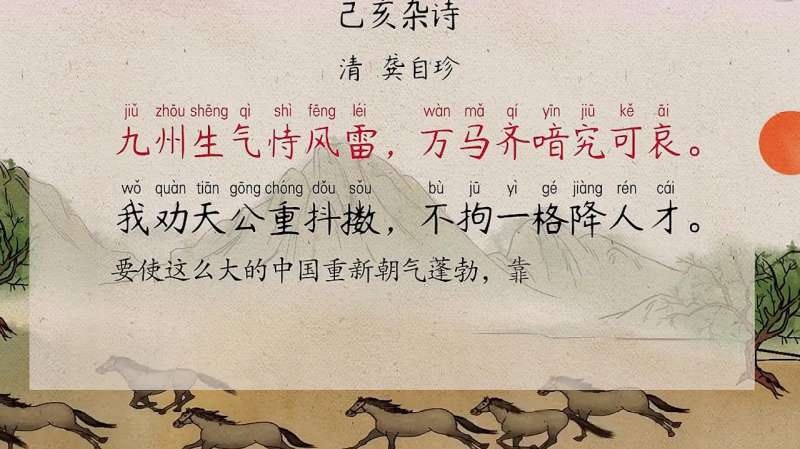 己亥杂诗
清 龚自珍
jiǔ zhōu shēng qì shì fēng léi wàn mǎ qí yīn jiū kě āi
九州生气恃风雷，万马齐喑究可哀。
wǒ quàn tiān gōng chóng dǒu sǒu bù jū yì gé jiàng rén cái
我劝天公重抖擞，不拘一格降人才。
要使这么大的中国重新朝气蓬勃，靠